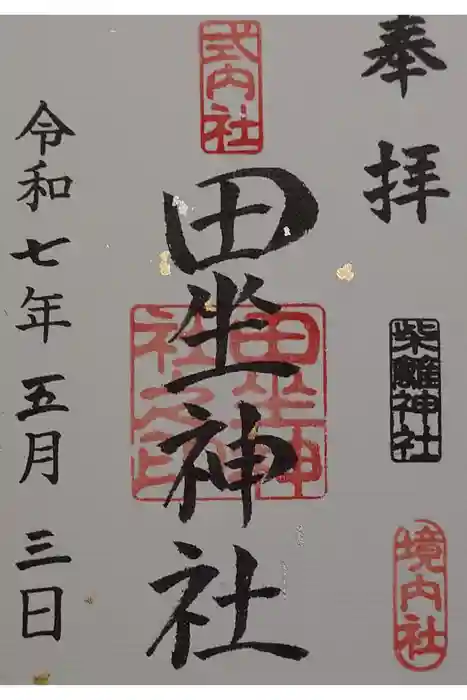 奉拝
柴離神社
境内社
式内社
田坐神社
田坐神社之印
令和七年五月三日